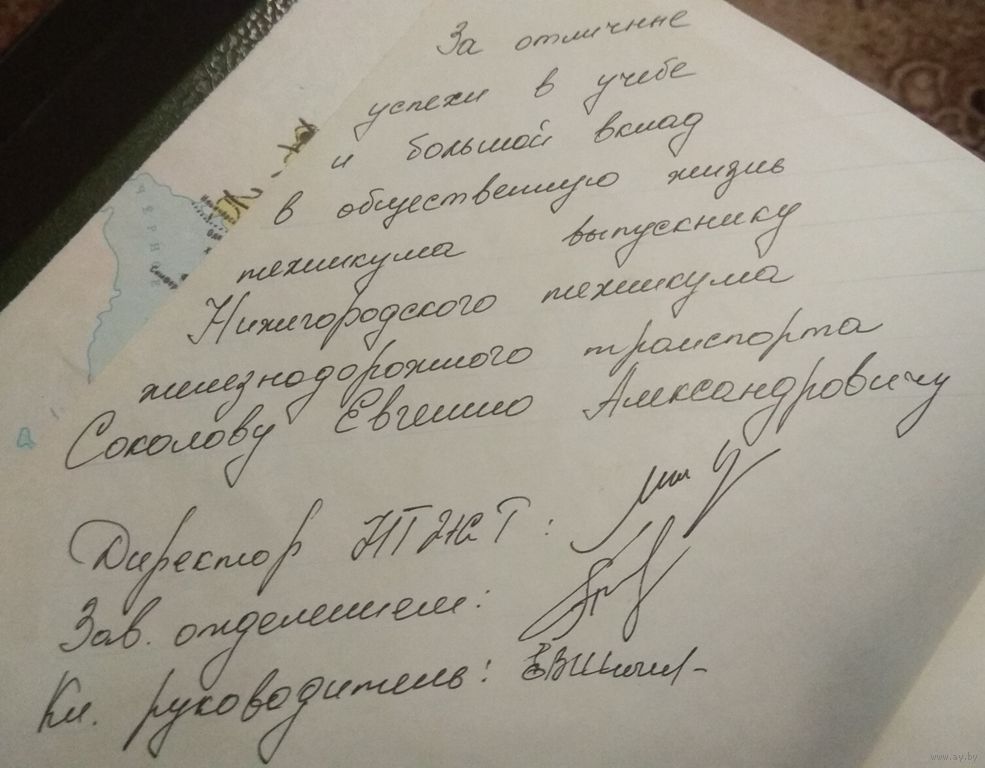 За отличные
успехи в учебе
и большой вклад
в общественную жизнь
техникума выпускнику
Нижегородского техникума
железнодорожного транспорта
Соколову Евгению Александровичу
Директор НТЖТ:
Зав. отделением:
Кл. руководитель:
www.ay.by